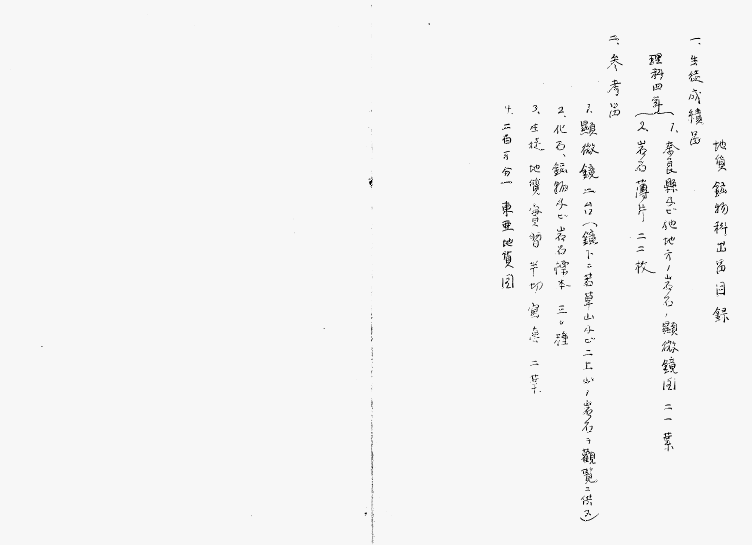 地質鉱物科出品目録
一、生徒成績品
理科四年
1、奈良縣及ビ他地方ノ岩石ノ顕微鏡図 二一葉
2、岩石薄片 二二枚
二、参考品
1、顕微鏡 二台(鏡下ニ若草山及ビ二上山ノ岩石ヲ観覧ニ供ス)
2、化石、鉱物及ビ岩石標本 三〇種
3、生徒 地質実習 半切 寫真 二葉
4、二百万分一 東亜地質図